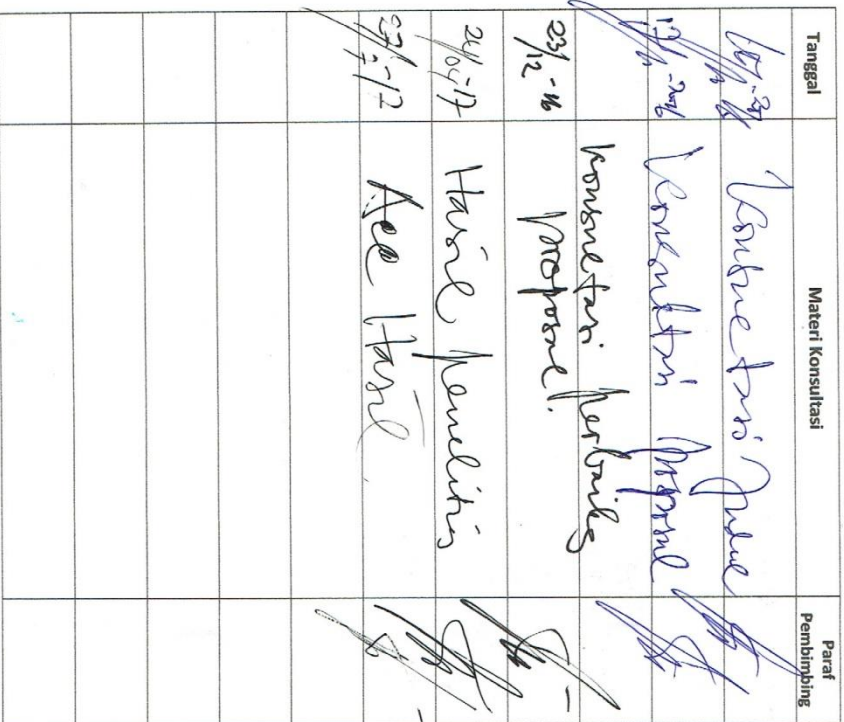 Tanggal Materi Konsultasi Paraf Pembimbing
Konsultasi Judul
Konsultasi proposal
Konsultasi perbaikan
23/12-16 proposal.
24/04-17 Hasil penelitian
Acc Hasil